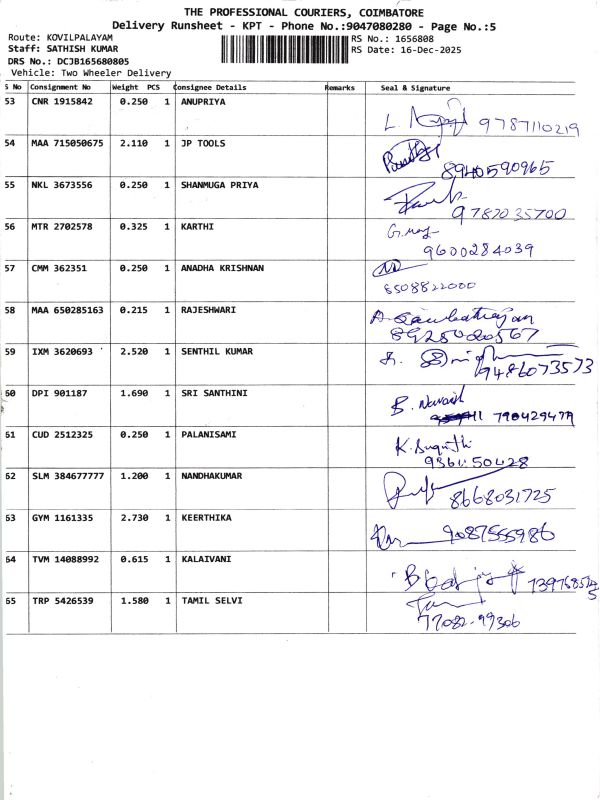 THE PROFESSIONAL COURIERS, COIMBATORE
Delivery Runsheet - KPT - Phone No.:9047080280 - Page No.:5
Route: KOVILPALAYAM
RS No.: 1656808
Staff: SATHISH KUMAR
RS Date: 16-Dec-2025
DRS No.: DCJB165680805
Vehicle: Two Wheeler Delivery
S No Consignment No Weight PCS Consignee Details Remarks Seal & Signature
53 CNR 1915842 0.250 1 ANUPRIYA
L 9787110219
54 MAA 715050675 2.110 1 JP TOOLS
8940590965
55 NKL 3673556 0.250 1 SHANMUGA PRIYA
9787035700
56 MTR 2702578 0.325 1 KARTHI
9600284039
57 CMM 362351 0.250 1 ANADHA KRISHNAN
6508822000
58 MAA 650285163 0.215 1 RAJESHWARI
59 IXM 3620693 2.520 1 SENTHIL KUMAR
9486073573
60 DPI 901187 1.690 1 SRI SANTHINI
61 CUD 2512325 0.250 1 PALANISAMI
62 SLM 384677777 1.200 1 NANDHAKUMAR
8668031725
63 GYM 1161335 2.730 1 KEERTHIKA
9087555986
64 TVM 14088992 0.615 1 KALAIVANI
65 TRP 5426539 1.580 1 TAMIL SELVI
77082-99306